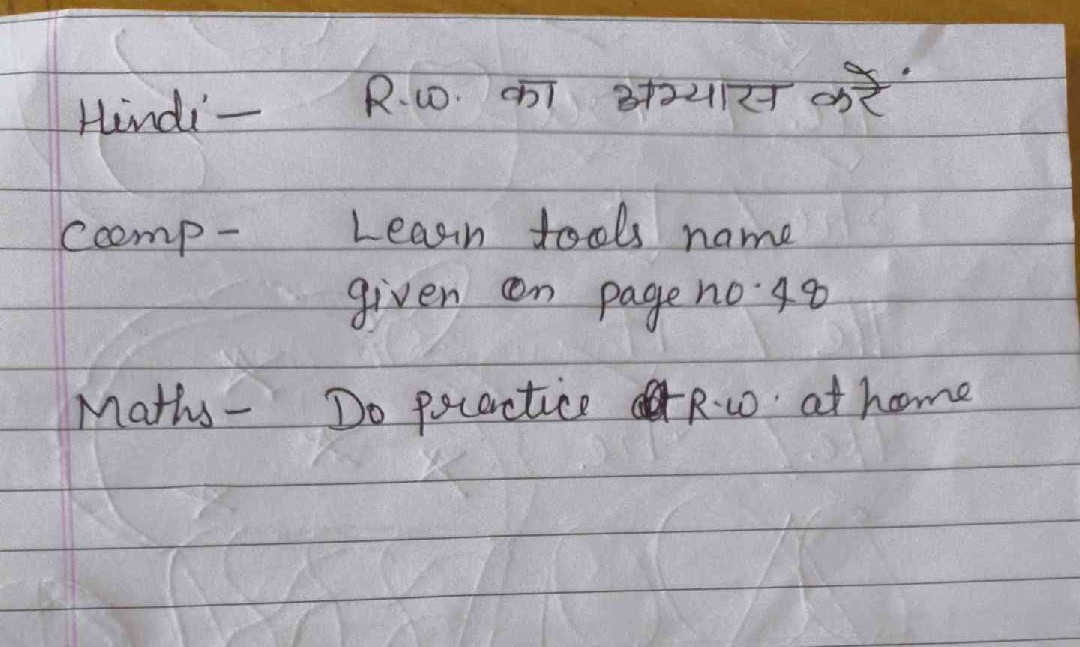 Hindi - R.W. का अभ्यास करें
Comp - Learn tools name
given on page no. 48
Maths - Do practice R.W. at home